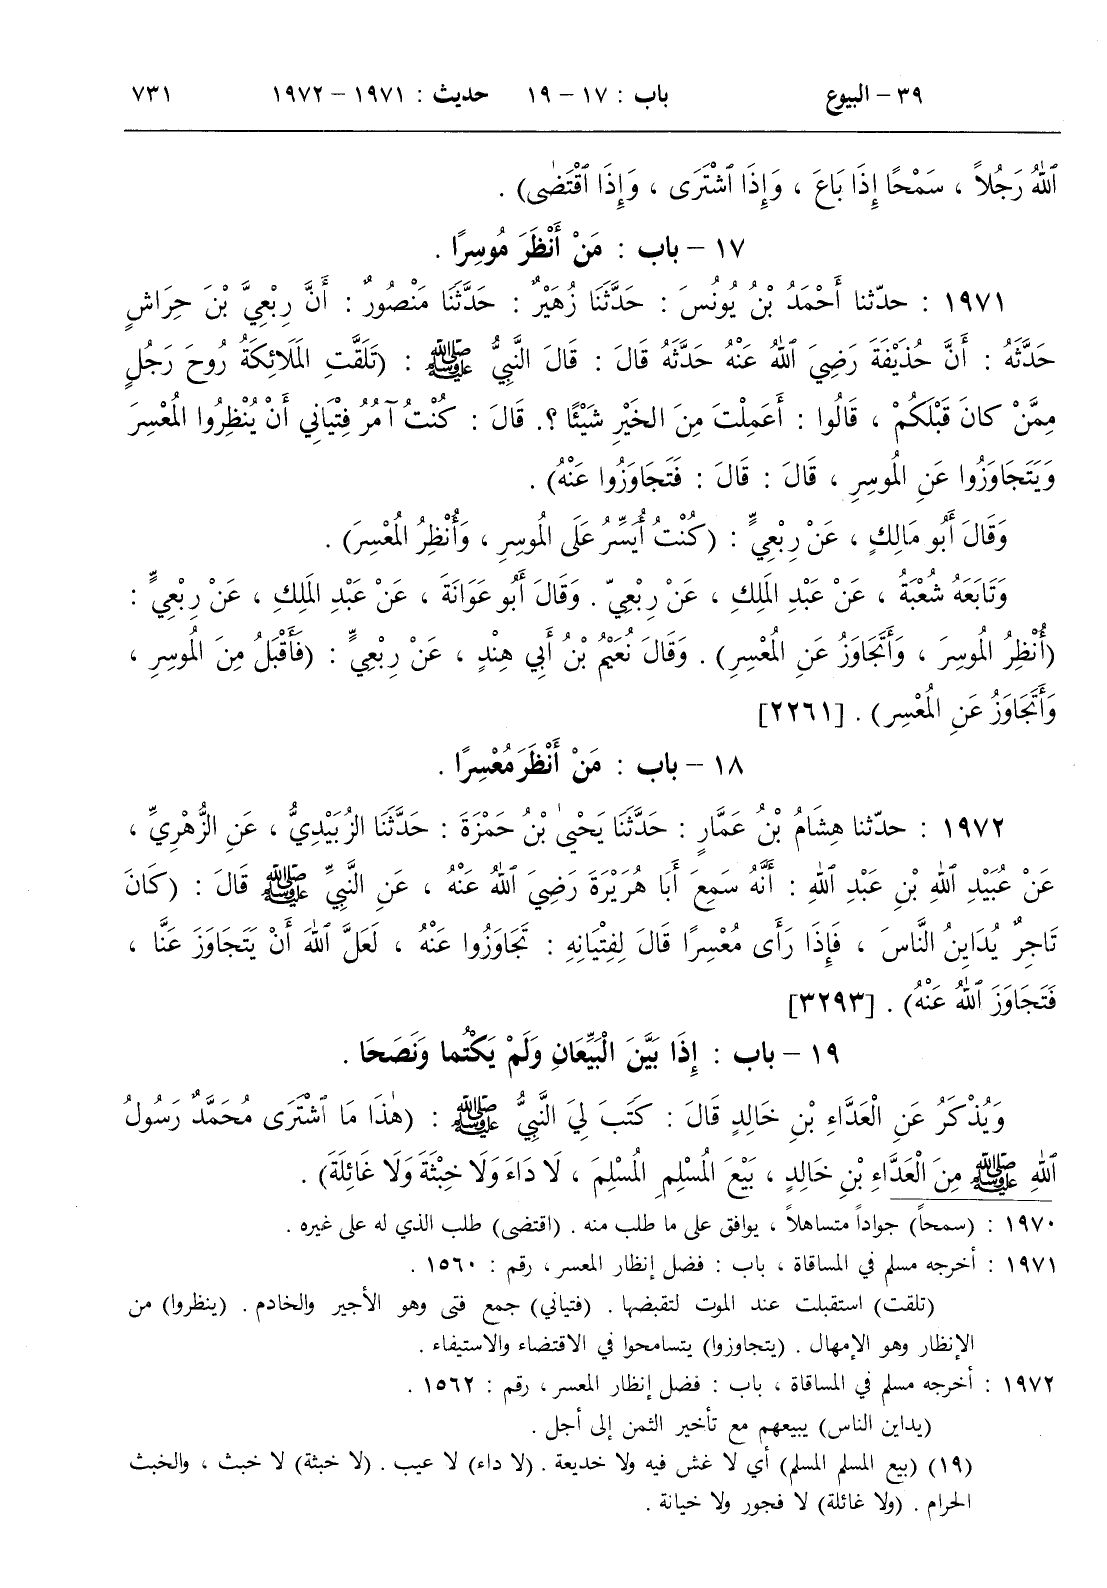 ٣٩ - البيوع باب : ١٧ - ١٩ حديث : ١٩٧١ - ١٩٧٢ ٧٣١
ٱللهُ رَجُلاً ، سَمْحًا إِذَا بَاعَ ، وَإِذَا ٱشْتَرَى ، وَإِذَا ٱقْتَضٰى) .
١٧ - باب : مَنْ أَنْظَرَ مُوسِرًا .
١٩٧١ : حدّثنا أَحْمَدُ بْنُ يُونُسَ : حَدَّثَنَا زُهَيْرٌ : حَدَّثَنَا مَنْصُورٌ : أَنَّ رِبْعِيَّ بْنَ حِرَاشٍ
حَدَّثَهُ : أَنَّ حُذَيْفَةَ رَضِيَ ٱللهُ عَنْهُ حَدَّثَهُ قَالَ : قَالَ النَّبِيُّ ﷺ : (تَلَقَّتِ المَلَائِكَةُ رُوحَ رَجُلٍ
مِمَّنْ كانَ قَبْلَكُمْ ، قَالُوا : أَعَمِلْتَ مِنَ الخَيْرِ شَيْئًا ؟. قَالَ : كُنْتُ آمُرُ فِتْيَاني أَنْ يُنْظِرُوا المُعْسِرَ
وَيَتَجَاوَزُوا عَنِ المُوسِرِ ، قَالَ : قَالَ : فَتَجَاوَزُوا عَنْهُ) .
وَقَالَ أَبُو مَالِكٍ ، عَنْ رِبْعِيٍّ : (كُنْتُ أُيَسِّرُ عَلَى المُوسِرِ ، وَأُنْظِرُ المُعْسِرَ) .
وَتَابَعَهُ شُعْبَةُ ، عَنْ عَبْدِ المَلِكِ ، عَنْ رِبْعِيّ . وَقَالَ أَبُو عَوَانَةَ ، عَنْ عَبْدِ المَلِكِ ، عَنْ رِبْعِيٍّ :
(أُنْظِرُ المُوسِرَ ، وَأَتَجَاوَزُ عَنِ المُعْسِرِ) . وَقَالَ نُعَيْمُ بْنُ أَبِي هِنْدٍ ، عَنْ رِبْعِيٍّ : (فَأَقْبَلُ مِنَ المُوسِرِ ،
وَأَتَجَاوَزُ عَنِ المُعْسِرِ) . [٢٢٦١]
١٨ - باب : مَنْ أَنْظَرَ مُعْسِرًا .
١٩٧٢ : حدّثنا هِشَامُ بْنُ عَمَّارٍ : حَدَّثَنَا يَحْيىٰ بْنُ حَمْزَةَ : حَدَّثَنَا الزُّبَيْدِيُّ ، عَنِ الزُّهْرِيِّ ،
عَنْ عُبَيْدِ ٱللهِ بْنِ عَبْدِ ٱللهِ : أَنَّهُ سَمِعَ أَبَا هُرَيْرَةَ رَضِيَ ٱللهُ عَنْهُ ، عَنِ النَّبِيِّ ﷺ قَالَ : (كانَ
تَاجِرٌ يُدَايِنُ النَّاسَ ، فَإِذَا رَأَى مُعْسِرًا قَالَ لِفِتْيَانِهِ : تَجَاوَزُوا عَنْهُ ، لَعَلَّ ٱللهَ أَنْ يَتَجَاوَزَ عَنَّا ،
فَتَجَاوَزَ ٱللهُ عَنْهُ) . [٣٢٩٣]
١٩ - باب : إِذَا بَيَّنَ الْبَيِّعَانِ وَلَمْ يَكْتُما وَنَصَحَا .
وَيُذْكَرُ عَنِ الْعَدَّاءِ بْنِ خَالِدٍ قَالَ : كَتَبَ لِيَ النَّبِيُّ ﷺ : (هٰذَا مَا ٱشْتَرَى مُحَمَّدٌ رَسُولُ
ٱللهِ ﷺ مِنَ الْعَدَّاءِ بْنِ خَالِدٍ ، بَيْعَ المُسْلِمِ المُسْلِمَ ، لَا دَاءَ وَلَا خِبْثَةَ وَلَا غَائِلَةَ) .
١٩٧٠ : (سمحاً) جواداً متساهلاً ، يوافق على ما طلب منه . (اقتضى) طلب الذي له على غيره .
١٩٧١ : أخرجه مسلم في المساقاة ، باب : فضل إنظار المعسر ، رقم : ١٥٦٠ .
(تلقت) استقبلت عند الموت لتقبضها . (فتياني) جمع فتى وهو الأجير والخادم . (ينظروا) من
الإنظار وهو الإمهال . (يتجاوزوا) يتسامحوا في الاقتضاء والاستيفاء .
١٩٧٢ : أخرجه مسلم في المساقاة ، باب : فضل إنظار المعسر ، رقم : ١٥٦٢ .
(يداين الناس) يبيعهم مع تأخير الثمن إلى أجل .
(١٩) (بيع المسلم المسلم) أي لا غش فيه ولا خديعة . (لا داء) لا عيب . (لا خبثة) لا خبث ، والخبث
الحرام . (ولا غائلة) لا فجور ولا خيانة .